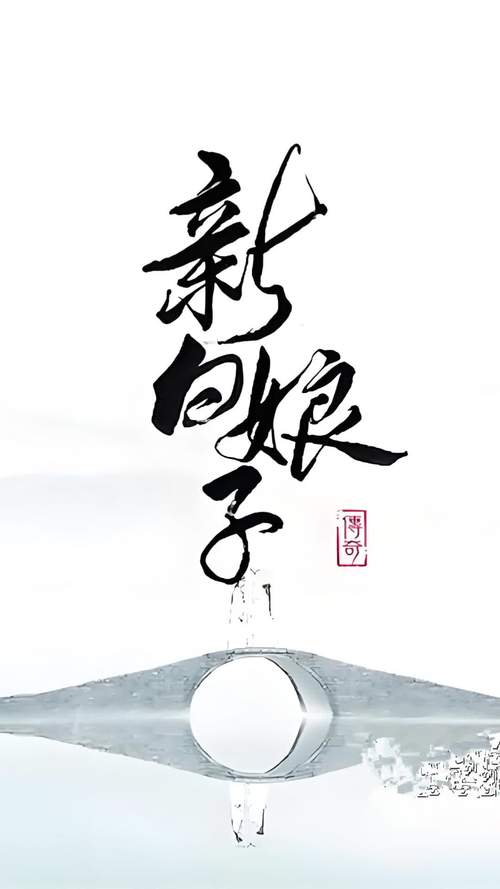 新
白娘
子
傳奇